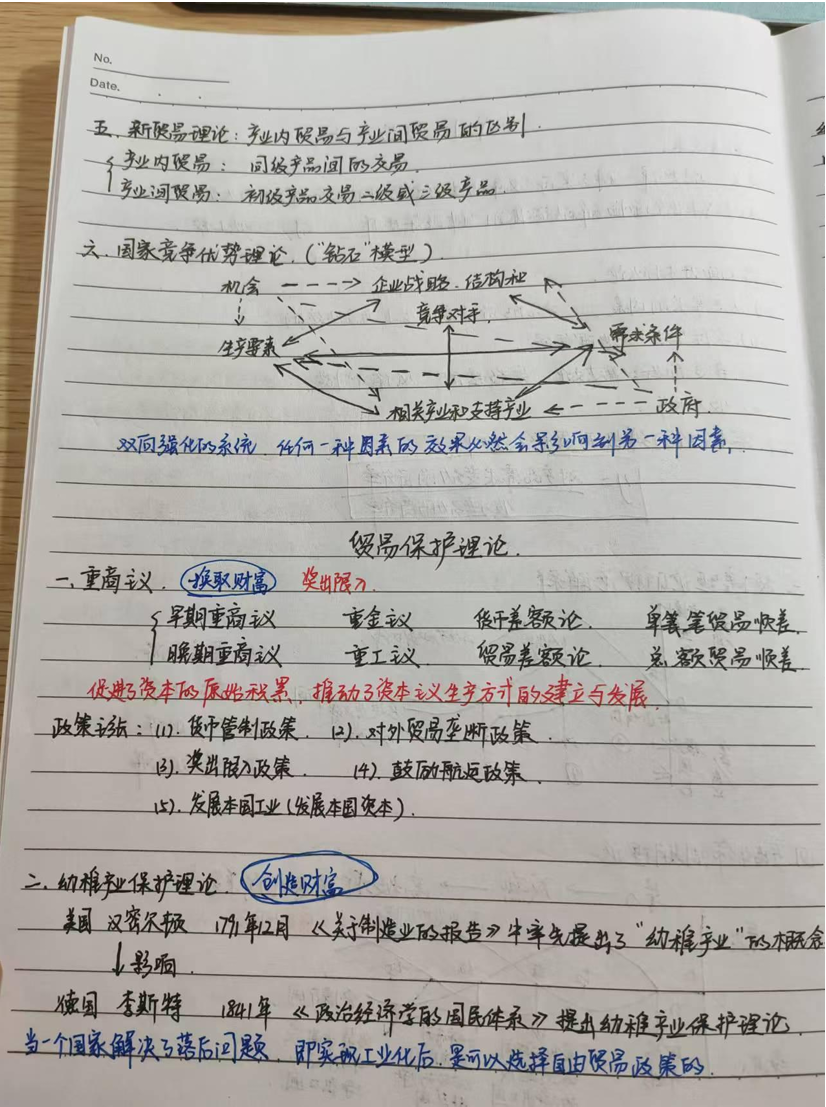 No.
Date.
五. 新贸易理论: 产业内贸易与产业间贸易的区别.
产业内贸易: 同级产品间的交易.
产业间贸易: 初级产品交易二级或三级产品
六. 国家竞争优势理论. ("钻石"模型).
机会 企业战略. 结构和
竞争对手.
生产要素 需求条件
相关产业和支持产业 政府.
双向强化的系统. 任何一种因素的效果必然会影响到另一种因素.
贸易保护理论.
一. 重商主义. 换取财富 奖出限入.
早期重商主义 重金主义 货币差额论. 单笔笔贸易顺差.
晚期重商主义 重工主义. 贸易差额论. 总额贸易顺差
促进了资本的原始积累, 推动了资本主义生产方式的建立与发展.
政策主张: (1). 货币管制政策. (2). 对外贸易垄断政策.
(3). 奖出限入政策. (4). 鼓励航运政策.
(5). 发展本国工业(发展本国资本).
二. 幼稚产业保护理论. 创造财富
美国 汉密尔顿 1791年12月 《关于制造业的报告》中率先提出了"幼稚产业"的概念
影响.
德国 李斯特 1841年 《政治经济学的国民体系》提出幼稚产业保护理论.
当一个国家解决了落后问题. 即实现工业化后. 是可以选择自由贸易政策的.